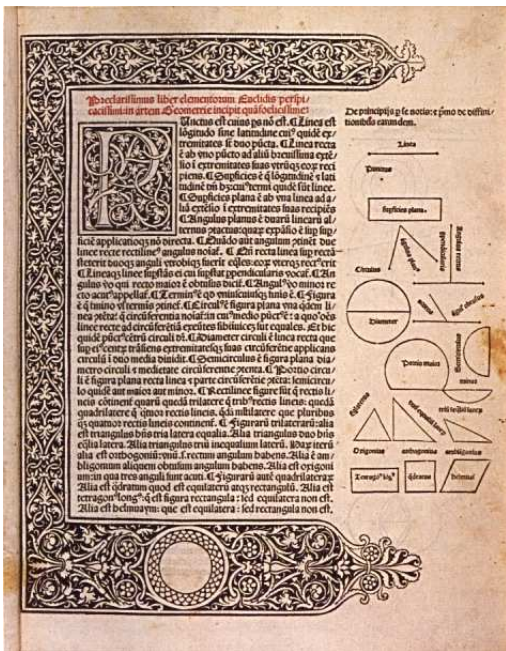 Preclarissimus liber elementorum Euclidis perspi/
cacissimi: in artem Geometrie incipit quãfoelicissime:
Punctus est cuius ps nõ est. ¶ Linea est
lõgitudo sine latitudine cui⁹ quidẽ ex/
tremitates sũt duo pũcta. ¶ Linea recta
ẽ ab vno pũcto ad aliũ breuissima extẽ/
sio ĩ extremitates suas vtrũqꝫ eoꝝ reci
piens. ¶ Supficies ẽ q̃ lõgitudinẽ ⁊ lati
tudinẽ tm̃ hꝫ: cui⁹ termi quidẽ sũt linee.
¶ Supficies plana ẽ ab vna linea ad a/
liã extẽsio ĩ extremitates suas recipiẽs
¶ Angulus planus ẽ duarũ linearũ al/
ternus ptactus: quaꝝ expãsio ẽ sup sup/
ficiẽ applicatioqꝫ nõ directa. ¶ Quãdo aut angulum ptinẽt due
linee recte rectiline⁹ angulus noiat̃. ¶ Qñ recta linea sup rectã
steterit duoqꝫ anguli vtrobiqꝫ fuerit eq̃les: eoꝝ vterqꝫ rect⁹ erit
¶ Lineaqꝫ linee supstãs ei cui supstat ppendicularis vocat̃. ¶ An
gulus vo qui recto maior ẽ obtusus dicit̃. ¶ Angul⁹ vo minor re
cto acut⁹ appellat̃. ¶ Termin⁹ ẽ qd vniuscuiusqꝫ finis ẽ. ¶ Figura
ẽ q̃ tmino vl termis ptinet̃. ¶ Circul⁹ ẽ figura plana vna qdem li/
nea ptẽta: q̃ circũferentia noiat̃: in cui⁹ medio pũct⁹ ẽ: a quo oẽs
linee recte ad circũferẽtiã exeũtes sibiinuicẽ sũt equales. Et hic
quidẽ pũct⁹ cẽtrũ circuli dr̃. ¶ Diameter circuli ẽ linea recta que
sup ei⁹ centꝝ trãsiens extremitatesqꝫ suas circũferẽtie applicans
circulũ ĩ duo media diuidit. ¶ Semicirculus ẽ figura plana dia/
metro circuli ⁊ medietate circũferentie ptenta. ¶ Portio circu/
li ẽ figura plana recta linea ⁊ parte circũferẽtie ptẽta: semicircu/
lo quidẽ aut maior aut minor. ¶ Rectilinee figure sũt q̃ rectis li/
neis cõtinent̃ quarũ quedã trilatere q̃ trib⁹ rectis lineis: quedã
quadrilatere q̃ qtuor rectis lineis. qdã mltilatere que pluribus
qꝫ quatuor rectis lineis continent̃. ¶ Figurarũ trilaterarũ: alia
est triangulus hñs tria latera equalia. Alia triangulus duo hñs
eq̃lia latera. Alia triangulus triũ inequalium laterũ. Haꝝ iterũ
alia est orthogoniũ: vnũ .s. rectum angulum habens. Alia ẽ am/
bligonium aliquem obtusum angulum habens. Alia est oxigoni
um: in qua tres anguli sunt acuti. ¶ Figurarũ autẽ quadrilateraꝝ
Alia est q̃dratum quod est equilaterũ atqꝫ rectangulũ. Alia est
tetragon⁹ long⁹: q̃ est figura rectangula: sed equilatera non est.
Alia est helmuaym: que est equilatera: sed rectangula non est.
De principijs p se notis: ⁊ pmo de diffini/
tionibus earundem.
Linea
Punctus
Supficies plana.
Circulus
Diameter
Portio maior
minor
Semicirculus
Orthogonius
ambligonius
Tetragon⁹ lõg⁹
q̃dratus
helmuaym